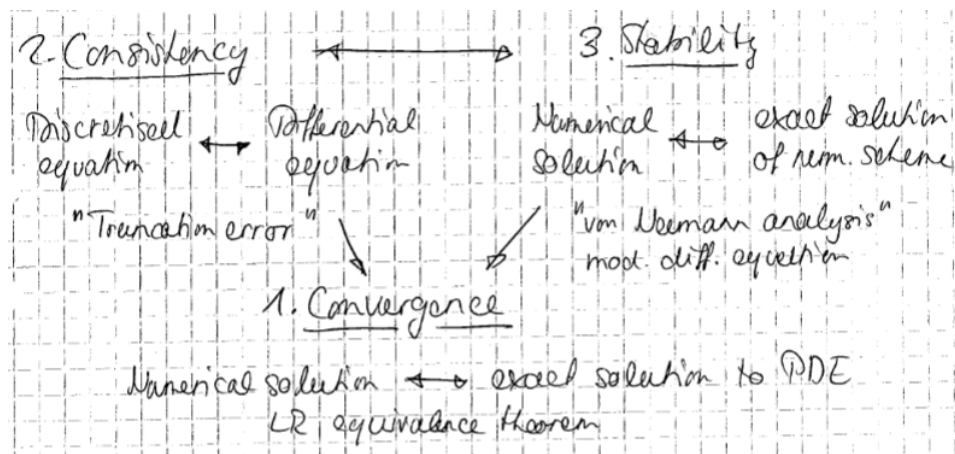 2. Consistency ⟷ 3. Stability
Discretised equation ↔ Differential equation
"Truncation error"
Numerical solution ↔ exact solution of num. scheme
"von Neumann analysis"
mod. diff. equation
1. Convergence
Numerical solution ↔ exact solution to PDE
LR equivalence theorem